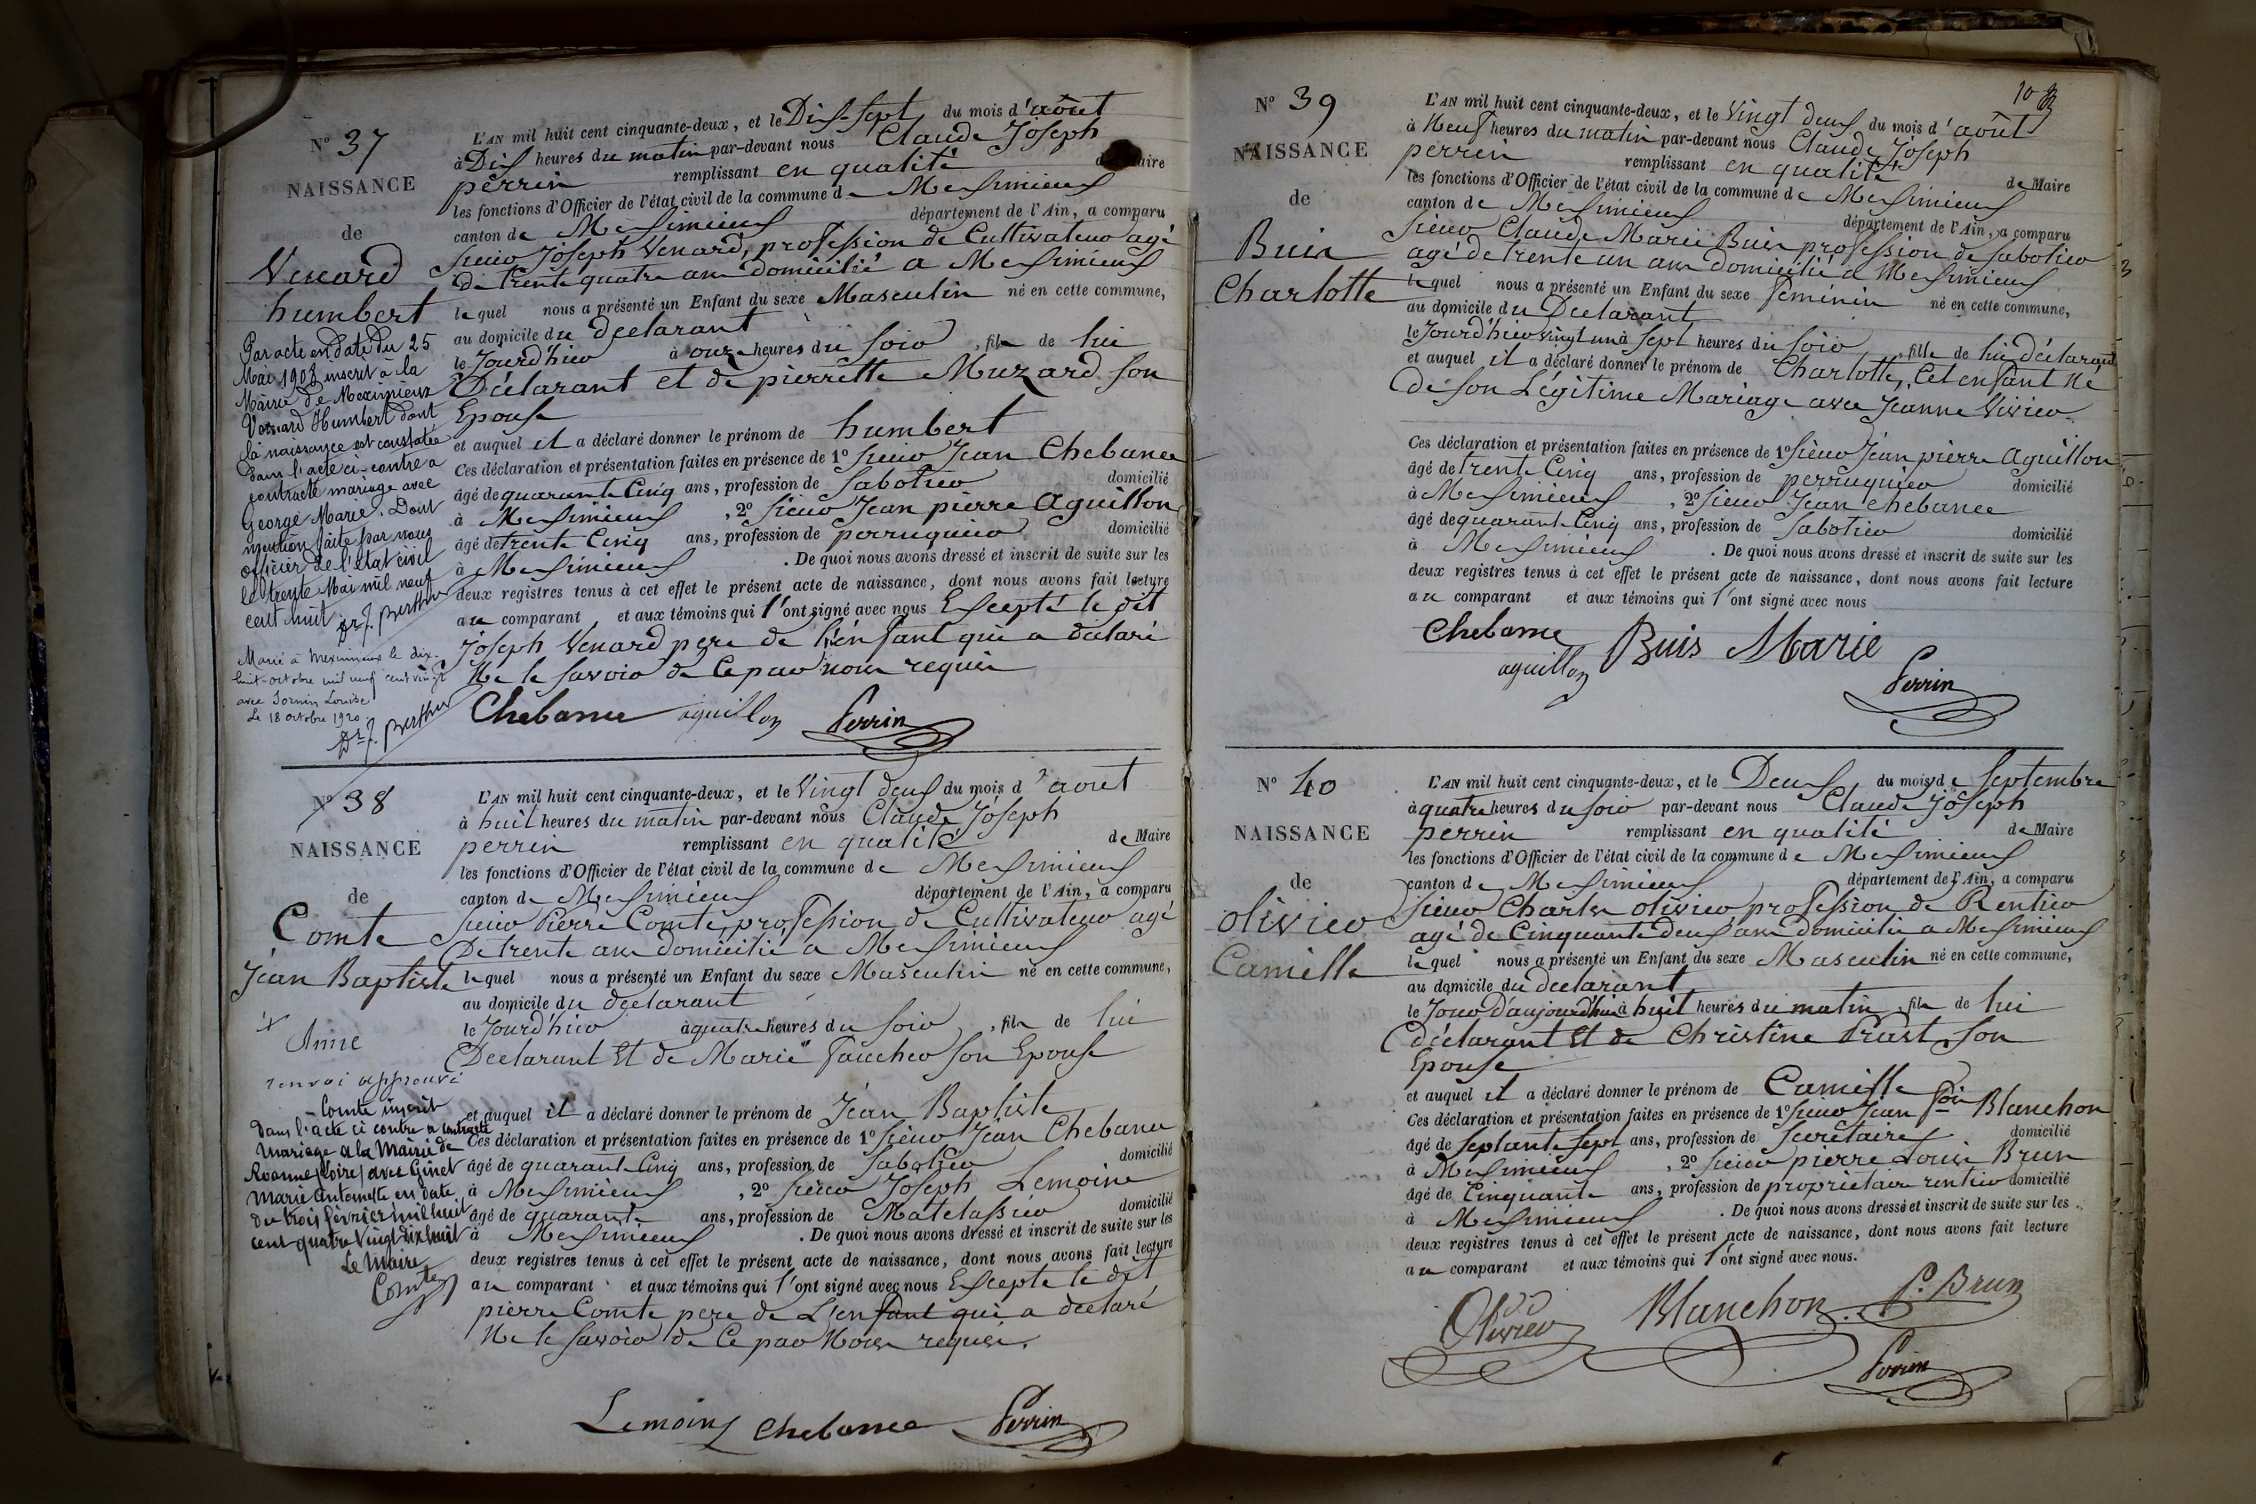 N° 37
NAISSANCE
de
Venard
humbert
Par acte en date du 25
Mai 1908 inscrit a la
Mairie de Meximieux
Venard Humbert dont
la naissance est constatée
dans l'acte ci-contre a
contracté mariage avec
George Marie. Dont
mention faite par nous
officier de l'état civil
le trente Mai mil neuf
cent huit Dr J. Berthier
Marié à Meximieux le dix-
huit octobre mil neuf cent vingt
avec Jornin Louise
Le 18 octobre 1920
Dr J. Berthier
L'AN mil huit cent cinquante-deux, et le Dix Sept du mois d'août
à Dix heures du matin par-devant nous Claude Joseph
perrin remplissant en qualité de Maire
les fonctions d'Officier de l'état civil de la commune de Meximieux
canton de Meximieux département de l'Ain, a comparu
Sieur Joseph Venard, profession de Cultivateur agé
de trente quatre ans domicilié a Meximieux
lequel nous a présenté un Enfant du sexe Masculin né en cette commune,
au domicile du declarant
le Jourd'hier à onze heures du soir, fils de lui
Déclarant et de pierrette Muzard son
Epouse
et auquel il a déclaré donner le prénom de humbert
Ces déclaration et présentation faites en présence de 1° Sieur Jean Chebance
âgé de quarante Cinq ans, profession de Sabotier domicilié
à Meximieux, 2° Sieur Jean pierre Aguillon
âgé de trente Cinq ans, profession de perruquier domicilié
à Meximieux. De quoi nous avons dressé et inscrit de suite sur les
deux registres tenus à cet effet le présent acte de naissance, dont nous avons fait lecture
au comparant et aux témoins qui l'ont signé avec nous Excepté le dit
Joseph Venard pere de l'enfant qui a déclaré
Ne le savoir de Ce par nous requis
Chebance aguillon Perrin
N° 38
NAISSANCE
de
Comte
Jean Baptiste
Aimé
renvoi approuvé
Comte inscrit
Dans l'acte ci contre a contracté
mariage a la Mairie de
Roanne (Loire) avec Ginet
Marie Antoinette en date
du trois février mil huit
cent quatre vingt dix huit
Le Maire
Comte
L'AN mil huit cent cinquante-deux, et le Vingt deux du mois d'aout
à huit heures du matin par-devant nous Claude Joseph
perrin remplissant en qualité de Maire
les fonctions d'Officier de l'état civil de la commune de Meximieux
canton de Meximieux département de l'Ain, a comparu
Sieur Pierre Comte, profession de Cultivateur agé
De trente ans domicilié a Meximieux
lequel nous a présenté un Enfant du sexe Masculin né en cette commune,
au domicile du declarant
le Jourd'hier à quatre heures du soir, fils de lui
Declarant Et de Marie Faucher son Epouse
et auquel il a déclaré donner le prénom de Jean Baptiste
Ces déclaration et présentation faites en présence de 1° Sieur Jean Chebance
âgé de quarante Cinq ans, profession de Sabotier domicilié
à Meximieux, 2° Sieur Joseph Lemoine
âgé de quarante ans, profession de Matelassier domicilié
à Meximieux. De quoi nous avons dressé et inscrit de suite sur les
deux registres tenus à cet effet le présent acte de naissance, dont nous avons fait lecture
au comparant et aux témoins qui l'ont signé avec nous Excepté le dit
pierre Comte pere de L'enfant qui a declaré
Ne le savoir de Ce par Nous requis.
Lemoine Chebance Perrin
10
N° 39
NAISSANCE
de
Buis
Charlotte
L'AN mil huit cent cinquante-deux, et le Vingt deux du mois d'août
à Neuf heures du matin par-devant nous Claude Joseph
perrin remplissant en qualité de Maire
les fonctions d'Officier de l'état civil de la commune de Meximieux
canton de Meximieux département de l'Ain, a comparu
Sieur Claude Marie Buis profession de Sabotier
agé de trente un ans domicilié a Meximieux
lequel nous a présenté un Enfant du sexe féminin né en cette commune,
au domicile du Declarant
le Jourd'hier vingt un à Sept heures du soir, fille de lui déclarant
et auquel il a déclaré donner le prénom de Charlotte, Cet enfant Né
de son Légitime Mariage avec Jeanne Vivier
Ces déclaration et présentation faites en présence de 1° Sieur Jean pierre Aguillon
âgé de trente Cinq ans, profession de perruquier domicilié
à Meximieux, 2° Sieur Jean Chebance
âgé de quarante Cinq ans, profession de Sabotier domicilié
à Meximieux. De quoi nous avons dressé et inscrit de suite sur les
deux registres tenus à cet effet le présent acte de naissance, dont nous avons fait lecture
au comparant et aux témoins qui l'ont signé avec nous
Chebance Buis Marie
aguillon Perrin
N° 40
NAISSANCE
de
Olivier
Camille
L'AN mil huit cent cinquante-deux, et le Deux du mois de Septembre
à quatre heures du soir par-devant nous Claude Joseph
perrin remplissant en qualité de Maire
les fonctions d'Officier de l'état civil de la commune de Meximieux
canton de Meximieux département de l'Ain, a comparu
Sieur Charles Olivier profession de Rentier
agé de Cinquante deux ans domicilié a Meximieux
lequel nous a présenté un Enfant du sexe Masculin né en cette commune,
au domicile du declarant
le Jour D'aujourd'hui à huit heures du matin, fils de lui
déclarant Et de Christine Prast son
Epouse
et auquel il a déclaré donner le prénom de Camille
Ces déclaration et présentation faites en présence de 1° Sieur Jean Fois Blanchon
âgé de Septante Sept ans, profession de Secrétaire domicilié
à Meximieux, 2° Sieur pierre Louis Brun
âgé de Cinquante ans, profession de propriétaire rentier domicilié
à Meximieux. De quoi nous avons dressé et inscrit de suite sur les
deux registres tenus à cet effet le présent acte de naissance, dont nous avons fait lecture
au comparant et aux témoins qui l'ont signé avec nous.
Olivier Blanchon P. Brun
Perrin